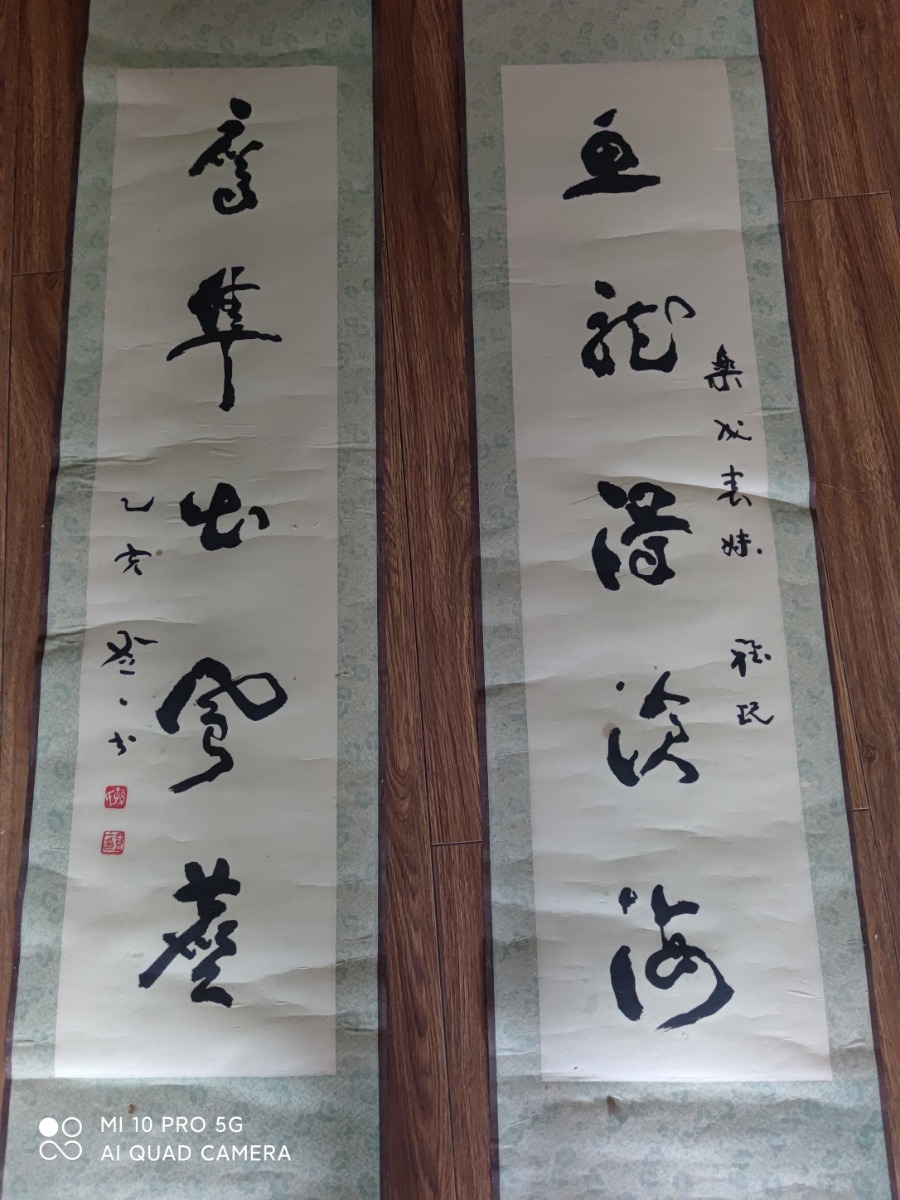 魚龍滄海
樂成表妹 雅玩
鷹隼出風塵
乙亥 书
MI 10 PRO 5G
AI QUAD CAMERA